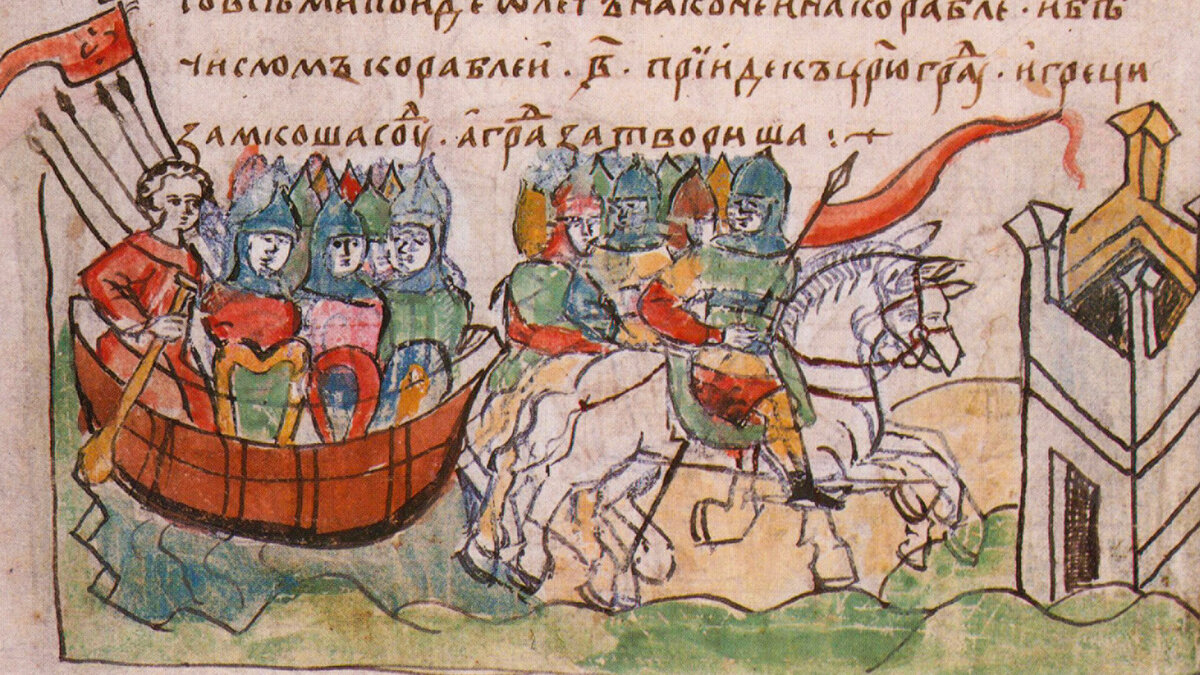 всѣми поиде ѡлегъ на коне и на корабле · и бѣ
числомъ кораблеи · в҃ · прїиде къ цр҃юграⷣ · и греци
замкоша соуⷣ · а граⷣ затвориша :